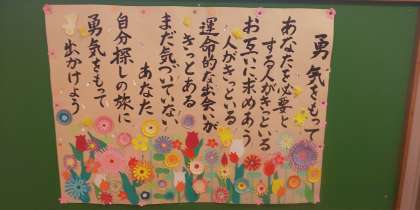 勇気をもって
あなたを必要と
する人がきっといる
お互いに求めあう
人がきっといる
運命的な出会いが
きっとある
まだ気づいていない
あなた
自分探しの旅に
勇気をもって
出かけよう